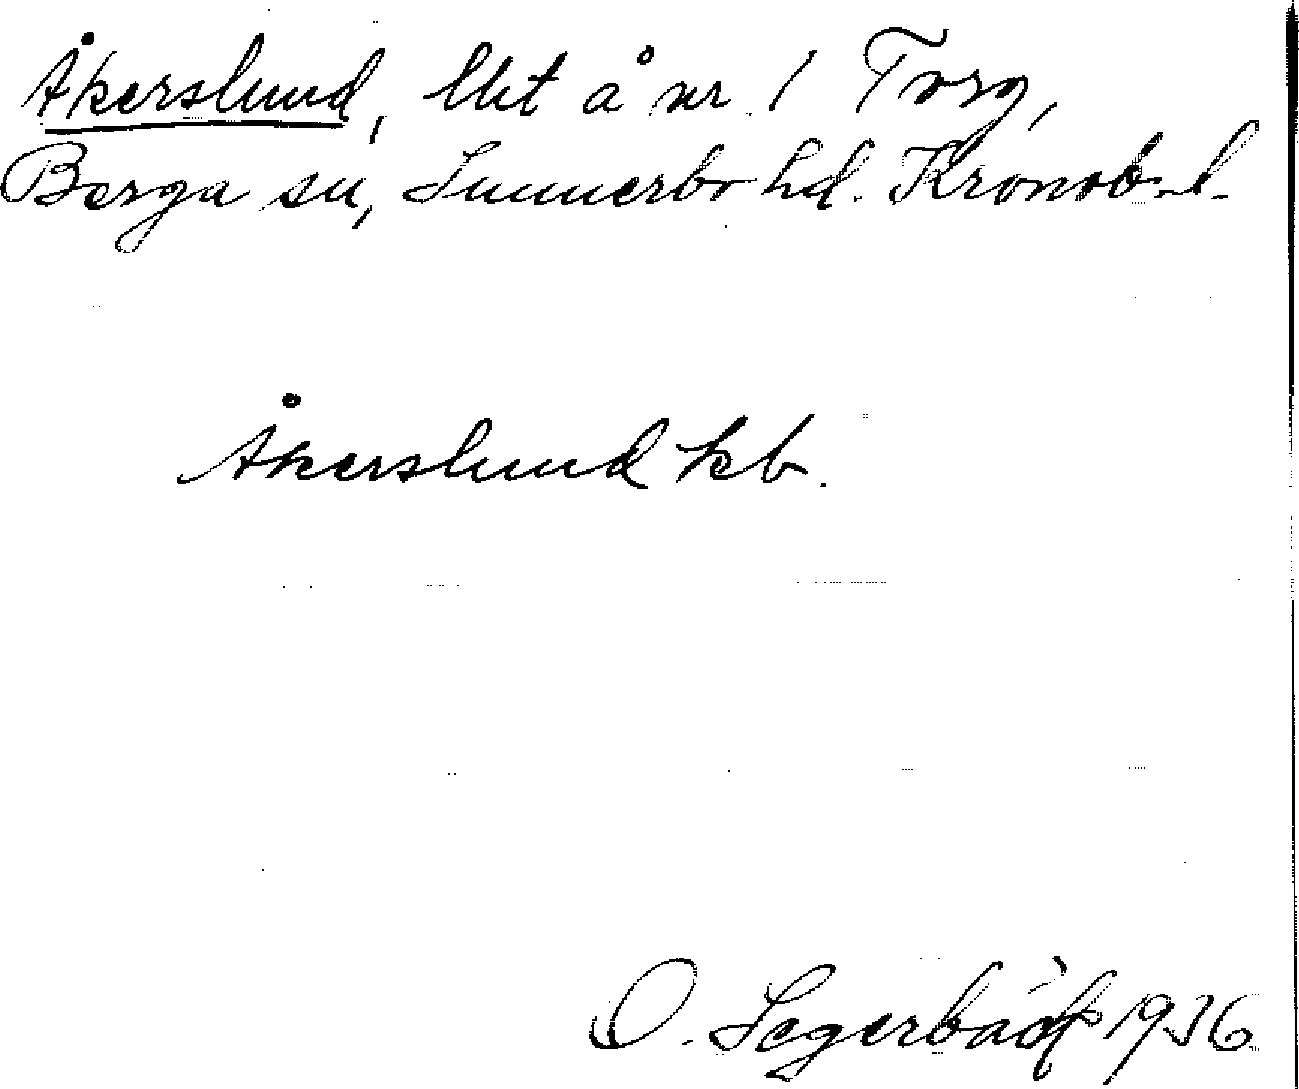 Åkerslund, lht å nr 1 Torg,
Berga sn, Sunnerbo hd. Kronob. l.
Åkerslund kb.
O. Segerbäck 1936